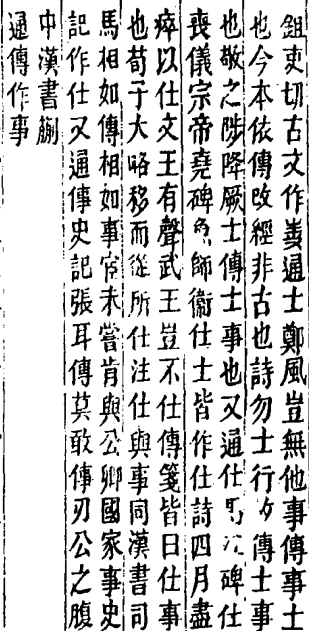 鉏吏切古文作通士鄭風豈無他事傳事士
也今本依傳改經非古也詩勿士行傳士事
也敬之陟降厥士傳士事也又通仕馬江碑仕
喪儀宗帝堯碑師衞仕士皆作仕詩四月盡
瘁以仕文王有聲武王豈不仕傳箋皆曰仕事
也荀子大略移而從所仕注仕與事同漢書司
馬相如傳相如事宦未嘗肯與公卿國家事史
記作仕又通倳史記張耳傳莫敢倳刃公之腹
中漢書蒯
通傳作事